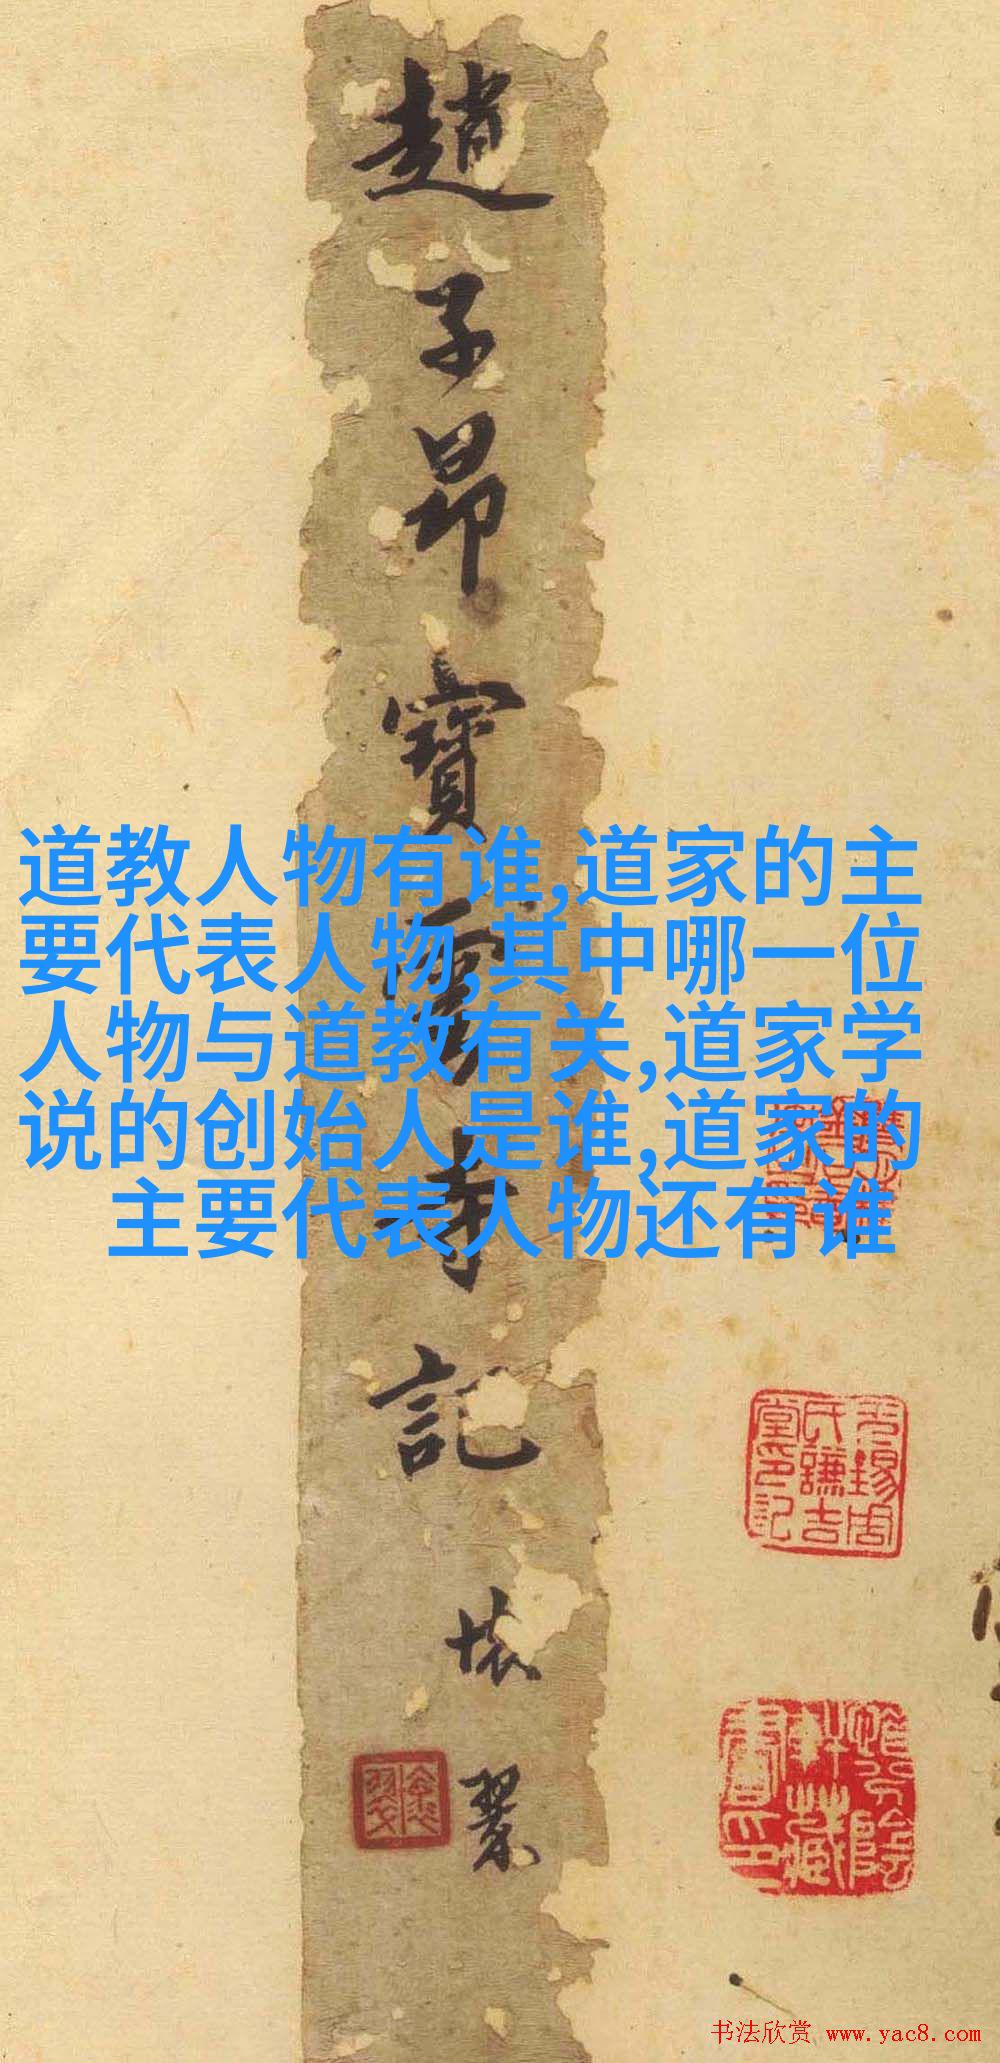 趙子昂寶雲寺記
道教人物有谁,道家的主
要代表人物,其中哪一位
人物与道教有关,道家学
说的创始人是谁,道家的
主要代表人物还有谁
无锡周
氏谦吉
堂印记
书法欣赏 www.yac8.com